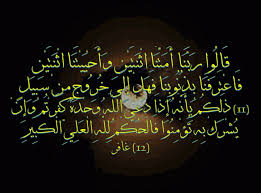 قَالُوا رَبَّنَا أَمَتَّنَا اثْنَتَيْنِ وَأَحْيَيْتَنَا اثْنَتَيْنِ
فَاعْتَرَفْنَا بِذُنُوبِنَا فَهَلْ إِلَى خُرُوجٍ مِنْ سَبِيلٍ
(11) ذَلِكُمْ بِأَنَّهُ إِذَا دُعِيَ اللَّهُ وَحْدَهُ كَفَرْتُمْ وَإِنْ
يُشْرَكْ بِهِ تُؤْمِنُوا فَالْحُكْمُ لِلَّهِ الْعَلِيِّ الْكَبِيرِ
(12) غافر